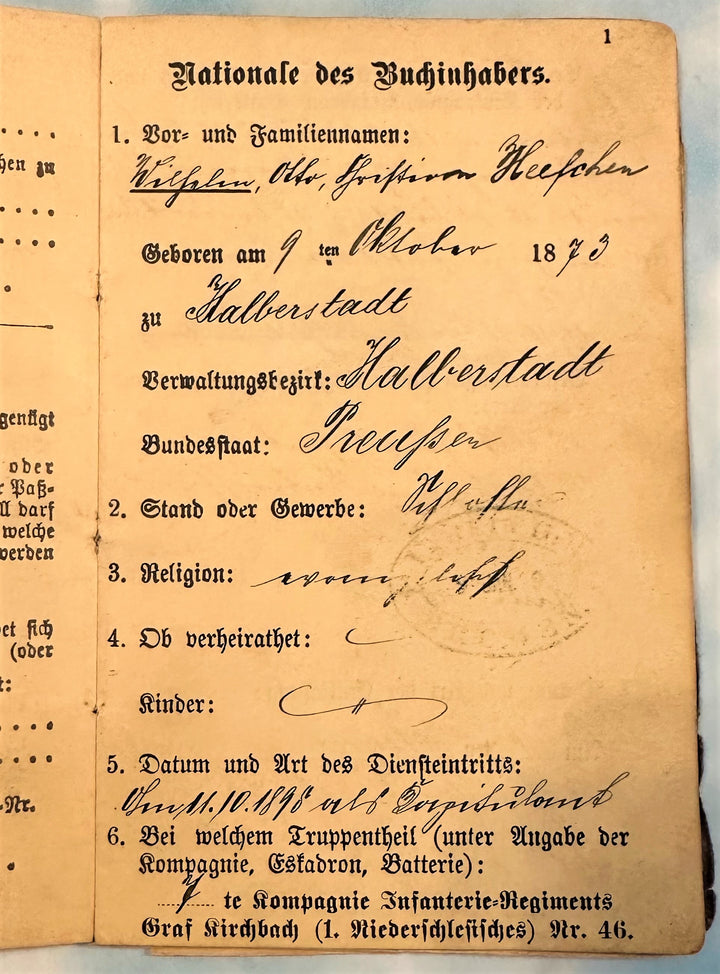 1
Nationale des Buchinhabers.
1. Vor- und Familiennamen:
Wilhelm, Otto, Christian
Geboren am 9 ten Oktober 1873
zu Halberstadt
Verwaltungsbezirk: Halberstadt
Bundesstaat: Preußen
2. Stand oder Gewerbe:
3. Religion: evangelisch
4. Ob verheirathet:
Kinder:
5. Datum und Art des Diensteintritts:
Am 11.10. als Kapitulant
6. Bei welchem Truppentheil (unter Angabe der
Kompagnie, Eskadron, Batterie):
7 te Kompagnie Infanterie-Regiments
Graf Kirchbach (1. Niederschlesisches) Nr. 46.
hen zu
genfigt
oder
r Paß-
ll darf
welche
werden
et sich
(oder
t:
-Nr.